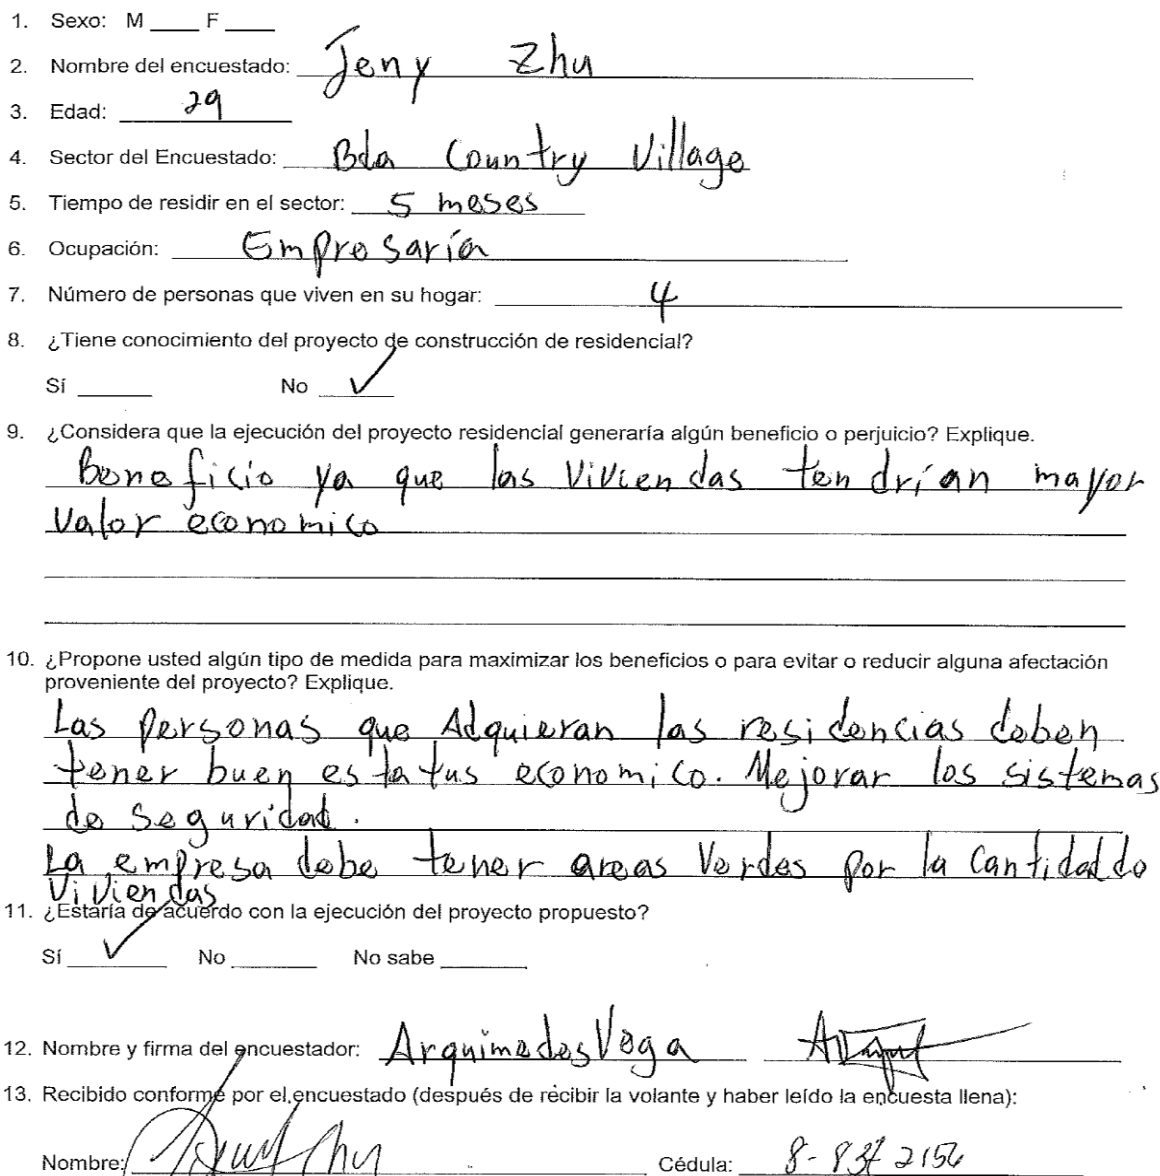 1. Sexo: M ____ F ____
2. Nombre del encuestado: Jeny Zhu
3. Edad: 29
4. Sector del Encuestado: Bda Country Village
5. Tiempo de residir en el sector: 5 meses
6. Ocupación: Empresaría
7. Número de personas que viven en su hogar: 4
8. ¿Tiene conocimiento del proyecto de construcción de residencial?
Sí ____ No ✓
9. ¿Considera que la ejecución del proyecto residencial generaría algún beneficio o perjuicio? Explique.
Beneficio ya que las viviendas tendrían mayor
Valor economico
10. ¿Propone usted algún tipo de medida para maximizar los beneficios o para evitar o reducir alguna afectación
proveniente del proyecto? Explique.
Las personas que Adquieran las residencias deben
tener buen estatus economico. Mejorar los sistemas
de Seguridad.
La empresa debe tener areas Verdes por la Cantidad de
Viviendas
11. ¿Estaría de acuerdo con la ejecución del proyecto propuesto?
Sí ✓ No ____ No sabe ____
12. Nombre y firma del encuestador: Arquimedes Vega
13. Recibido conforme por el encuestado (después de recibir la volante y haber leído la encuesta llena):
Nombre: Cédula: